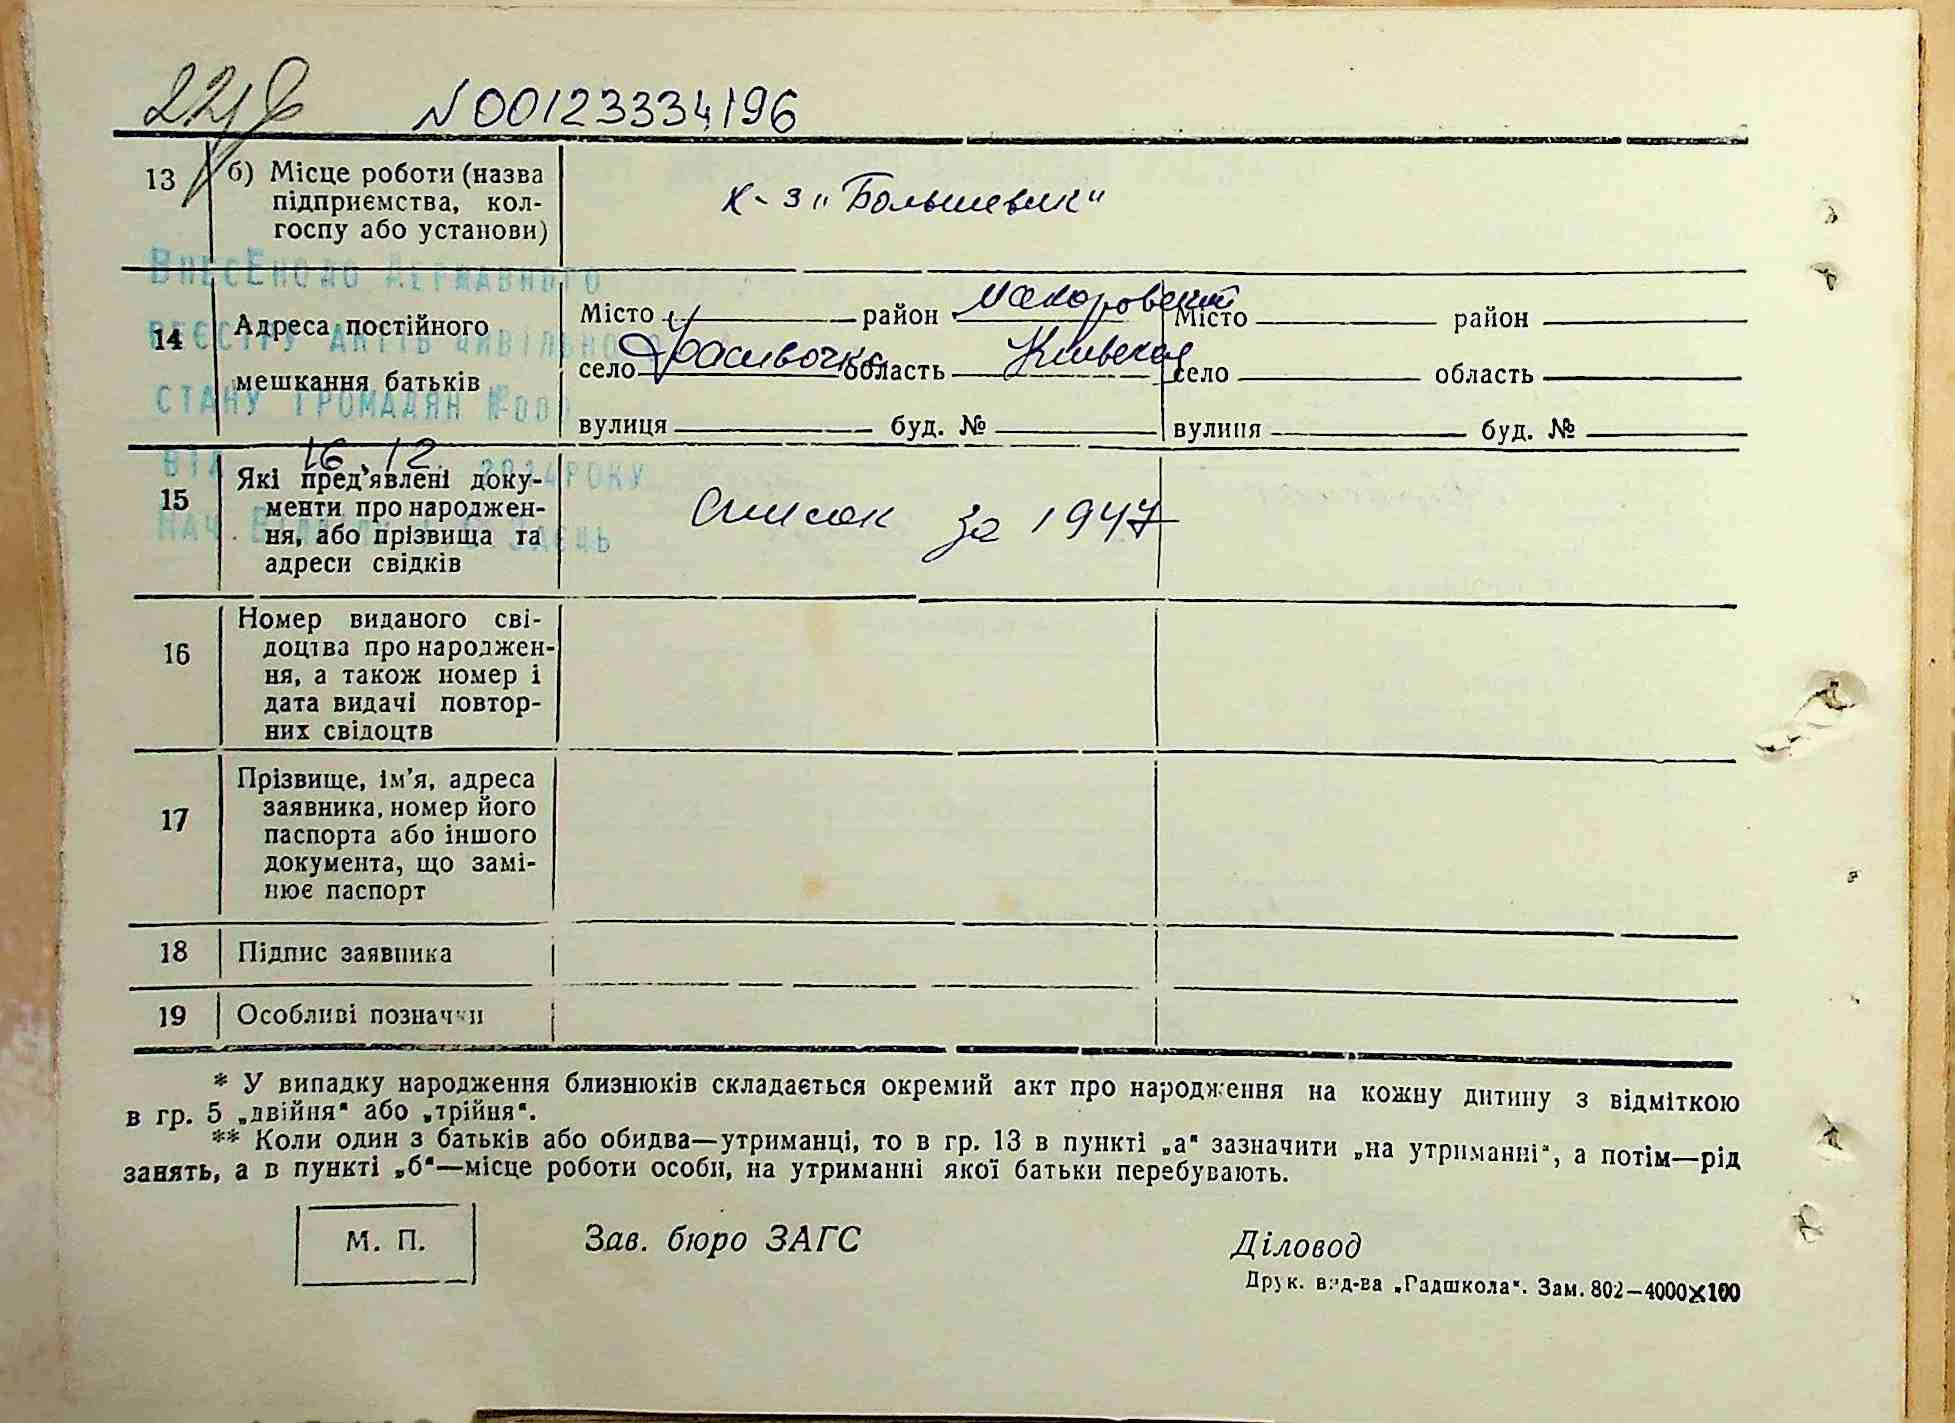 N00123334196
13 б) Місце роботи (назва
підприємства, кол-
госпу або установи)
к-з „Большевик"
ВнесЕно до Державного
реєстру Актів цивільного
стану громадян №00
від 16.12. 2024 року
14 Адреса постійного
мешкання батьків
Місто район Макаровский Місто район
село область Киевская село область
вулиця буд. № вулиця буд. №
15 Які пред'явлені доку-
менти про народжен-
ня, або прізвища та
адреси свідків
Список за 1947
16 Номер виданого сві-
доцтва про народжен-
ня, а також номер і
дата видачі повтор-
них свідоцтв
17 Прізвище, ім'я, адреса
заявника, номер його
паспорта або іншого
документа, що замі-
нює паспорт
18 Підпис заявника
19 Особливі позначки
* У випадку народження близнюків складається окремий акт про народження на кожну дитину з відміткою
в гр. 5 „двійня" або „трійня".
** Коли один з батьків або обидва—утриманці, то в гр. 13 в пункті „а" зазначити „на утриманні", а потім—рід
занять, а в пункті „б"—місце роботи особи, на утриманні якої батьки перебувають.
М. П. Зав. бюро ЗАГС Діловод
Друк. вид-ва „Радшкола". Зам. 802—4000×100